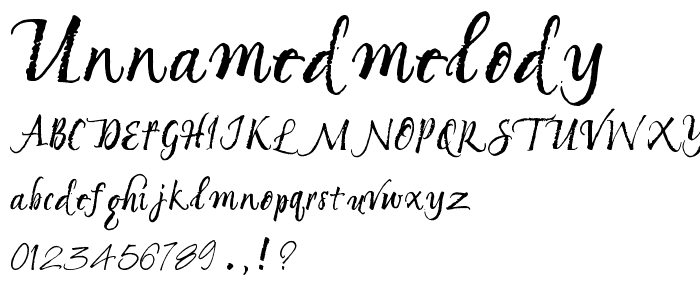 Unnamedmelody
ABCDEFGHIJKLMNOPQRSTUVWXY
abcdefghijklmnopqrstuvwxyz
0123456789.,!?